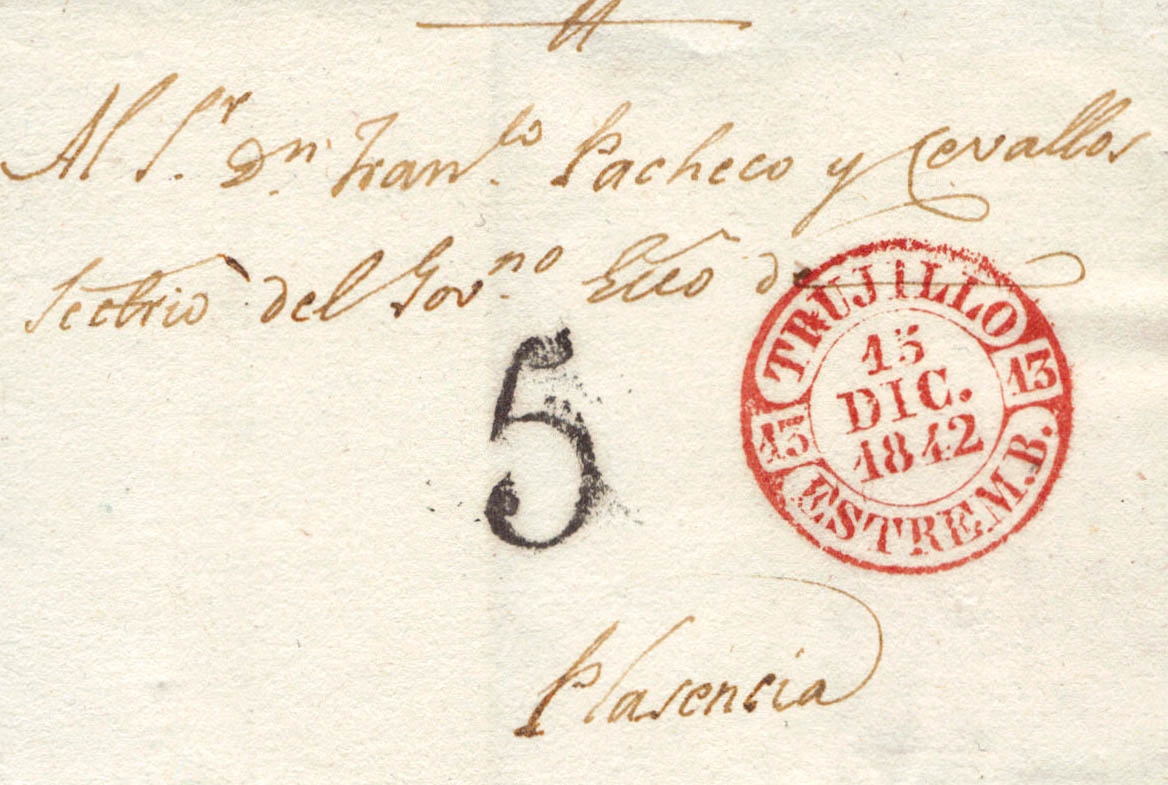 Al S.r D.n Fran.co Pacheco y Cevallos
Sectrio del Gov.no Ecco de
5
TRUJILLO
15
DIC.
1842
13 13
ESTREM.B.
Plasencia